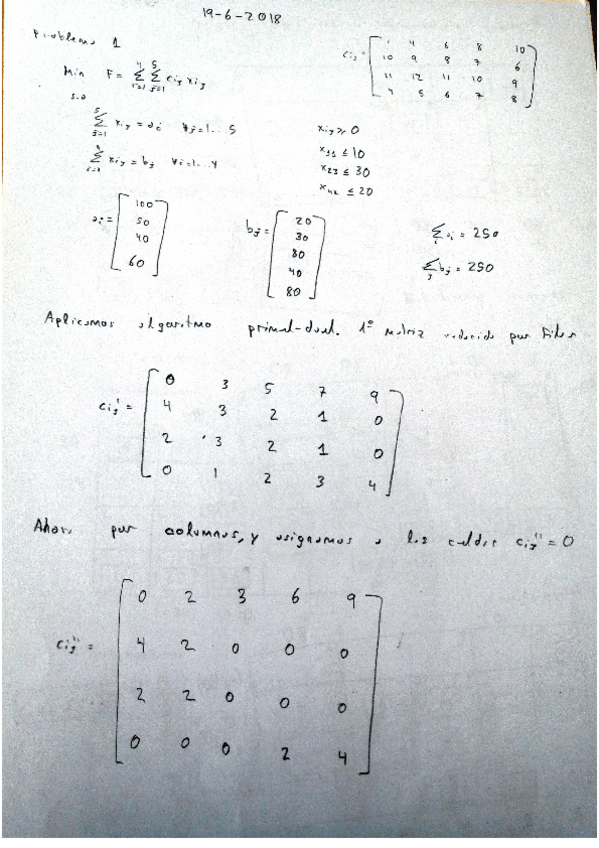 19-6-2018
Problema 1
Min F = Σ(i=1..4) Σ(j=1..5) cij xij
cij = [ 1 4 6 8 10
10 9 8 7 6
11 12 11 10 9
4 5 6 7 8 ]
s.a
Σ(j=1..5) xij = ai ∀j=1...5
xij ≥ 0
x11 ≤ 10
Σ(i=1..4) xij = bj ∀i=1...4
x23 ≤ 30
x42 ≤ 20
ai = [ 100
50
40
60 ]
bj = [ 20
30
80
40
80 ]
Σi ai = 250
Σj bj = 250
Aplicamos algoritmo primal-dual. 1º matriz reducida por filas
cij' = [ 0 3 5 7 9
4 3 2 1 0
2 3 2 1 0
0 1 2 3 4 ]
Ahora por columnas, y asignamos a las celdas cij'' = 0
cij'' = [ 0 2 3 6 9
4 2 0 0 0
2 2 0 0 0
0 0 0 2 4 ]